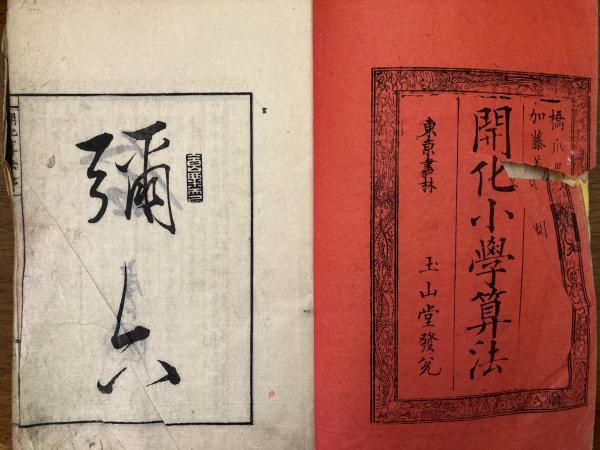 橋爪
加藤
開化小學算法
東京書林
玉山堂發兌
彌六